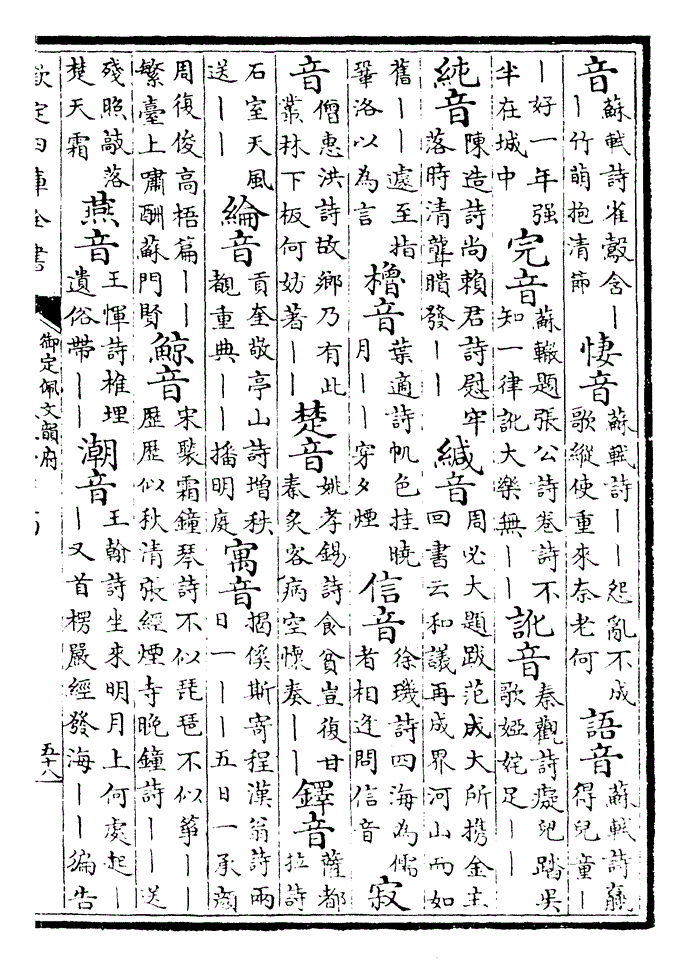 音蘇軾詩雀鷇含丨丨竹萌抱清節 悽音蘇軾詩丨丨怨亂不成歌縱使重來奈老何 語音蘇軾詩蔬得兒童丨
丨好一年强半在城中 完音蘇轍題張公詩卷詩不知一律訛大樂無丨丨 訛音秦觀詩癡兒踏吳歌婭姹足丨丨
純音陳造詩尚賴君詩慰牢落時清聾聵發丨丨 緘音周必大題跋范成大所攜金主回書云和議再成界河山而如
舊丨丨處至指鞏洛以為言 櫓音葉適詩帆色挂曉月丨丨穿夕煙 信音徐璣詩四海為儒者相逢問信音 寂
音僧惠洪詩故鄉乃有此叢林下板何妨著丨丨 楚音姚孝錫詩食貧豈復甘秦炙客病空懷奏丨丨 鐸音薩都拉詩
石室天風送丨丨 綸音貢奎敬亭山詩增秩覩重典丨丨播明庭 寓音揭傒斯寄程漢翁詩兩日一丨丨五日一承顔
周復俊高梧篇丨丨繁臺上嘯酬蘇門賢 鯨音宋褧霜鐘琴詩不似琵琶不似箏丨丨歷歷似秋清張經煙寺晚鐘詩丨丨送
殘照敲落楚天霜 燕音王惲詩椎埋遺俗帶丨丨 潮音王翰詩坐來明月上何處起丨丨又首楞嚴經發海丨丨徧告
欽定四庫全書
御定佩文韻府
五十八